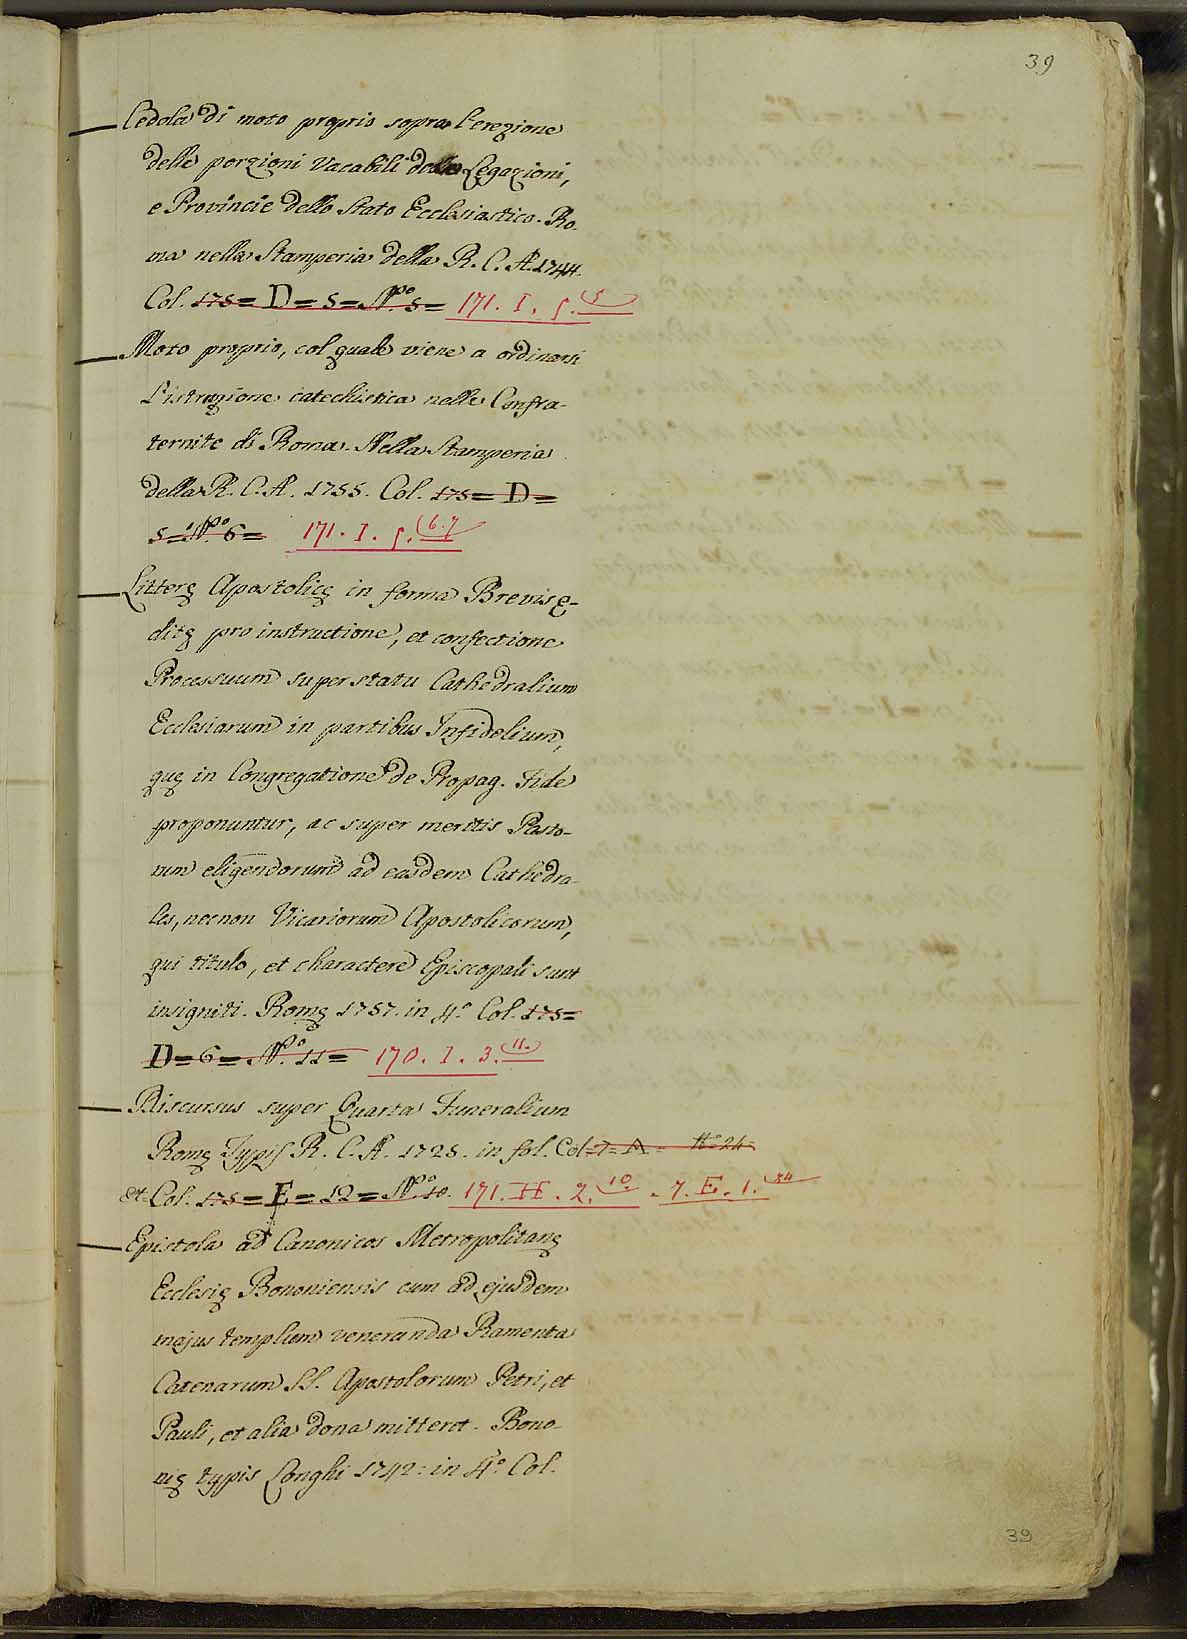 39
Cedola di moto proprio sopra l'erezione
delle porzioni Vacabili delle Legazioni,
e Provincie dello Stato Ecclesiastico. Ro-
ma nella Stamperia della R. C. A. 1744.
Col. 175 = D = 5 = N.º 5 = 171. I. 5. 5
Moto proprio, col quale viene a ordinarsi
l'istruzione catechistica nelle Confra-
ternite di Roma. Nella Stamperia
della R. C. A. 1755. Col. 175 = D =
5 = N.º 6 = 171. I. 5. 6.7
Litterę Apostolicę in forma Brevis ę-
ditę pro instructione, et confectione
Processuum super statu Cathedralium
Ecclesiarum in partibus Infidelium,
quę in Congregatione de Propag. Fide
proponuntur, ac super meritis Pasto-
rum eligendorum ad easdem Cathedra-
les, necnon Vicariorum Apostolicorum,
qui titulo, et charactere Episcopali sunt
insigniti. Romę 1757. in 4.º Col. 175 =
D = 6 = N.º 11 = 170. I. 3. 11.
Discursus super Quarta Funeralium
Romę Typis R. C. A. 1728. in fol. Col. 7 = A = N.º 24
et Col. 175 = E = 12 = N.º 10. 171. H. 2. 10. - 7. E. 1. 24
Epistola ad Canonicos Metropolitanę
Ecclesię Bononiensis cum ad ejusdem
majus templum veneranda Ramenta
Catenarum SS. Apostolorum Petri, et
Pauli, et alia dona mitteret. Bono-
nię typis Longhi 1742: in 4.º Col.
39